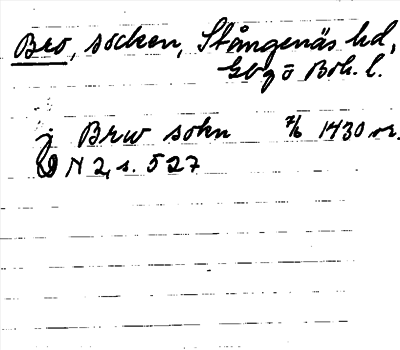 Bro, socken, Stångenäs hd,
Gbg o Boh. l.
j Brw sokn 7/6 1430 vr.
DN 2, s. 527